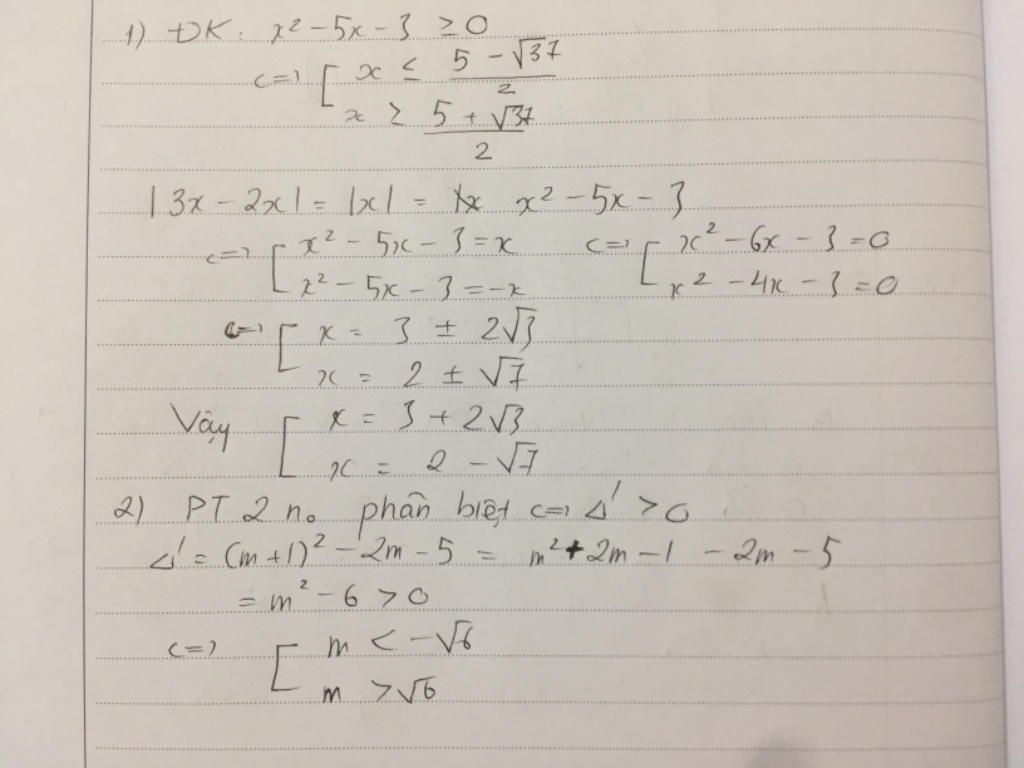 1) ĐK: x² - 5x - 3 ≥ 0
<=> [ x ≤ (5 - √37)/2
x ≥ (5 + √37)/2
|3x - 2x| = |x| = x² - 5x - 3
<=> [ x² - 5x - 3 = x <=> [ x² - 6x - 3 = 0
x² - 5x - 3 = -x x² - 4x - 3 = 0
<=> [ x = 3 ± 2√3
x = 2 ± √7
Vậy [ x = 3 + 2√3
x = 2 - √7
2) PT 2 no phân biệt <=> Δ' > 0
Δ' = (m+1)² - 2m - 5 = m² + 2m - 1 - 2m - 5
= m² - 6 > 0
<=> [ m < -√6
m > √6